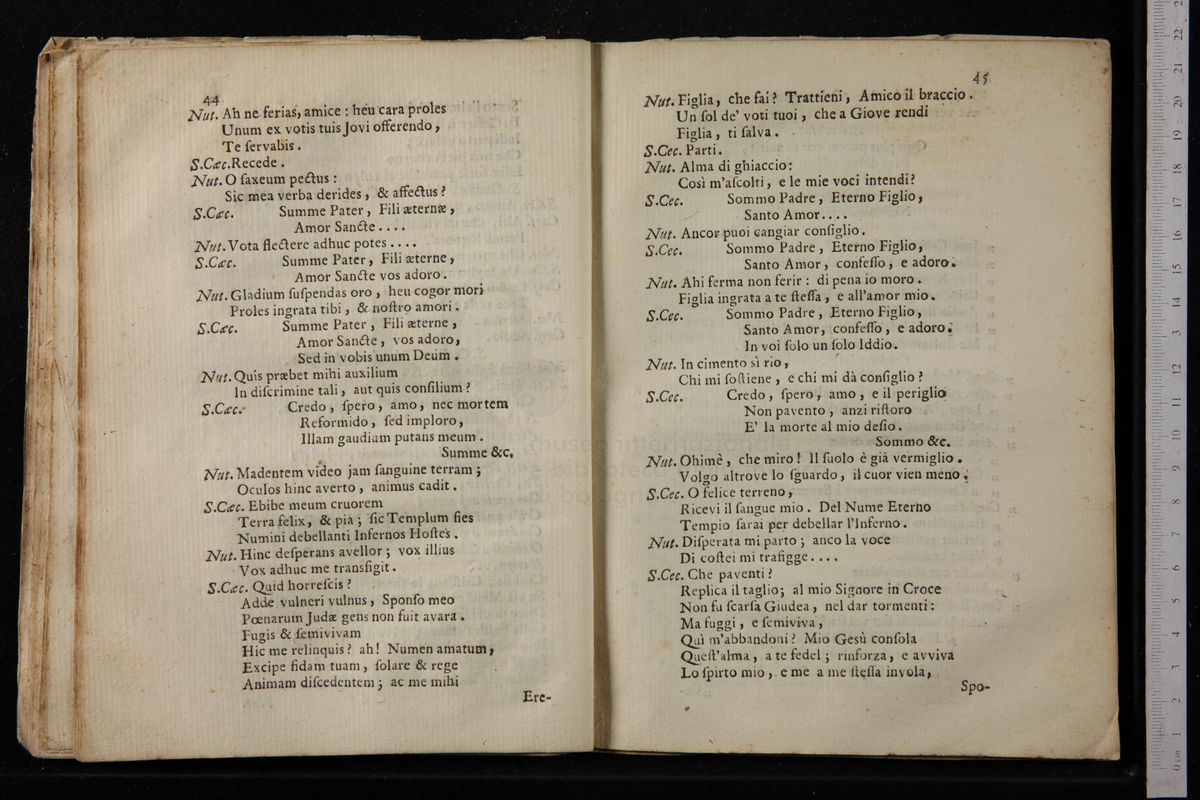 44
Nut. Ah ne ferias, amice : heu cara proles
Unum ex votis tuis Jovi offerendo ,
Te ſervabis .
S.Cæc. Recede .
Nut. O ſaxeum pectus :
Sic mea verba derides , & affectus ?
S.Cæc. Summe Pater , Fili æternæ ,
Amor Sancte . . . .
Nut. Vota flectere adhuc potes . . . .
S.Cæc. Summe Pater , Fili æterne ,
Amor Sancte vos adoro .
Nut. Gladium ſuſpendas oro , heu cogor mori
Proles ingrata tibi , & noſtro amori .
S.Cæc. Summe Pater , Fili æterne ,
Amor Sancte , vos adoro ,
Sed in vobis unum Deum .
Nut. Quis præbet mihi auxilium
In diſcrimine tali , aut quis conſilium ?
S.Cæc. Credo , ſpero , amo , nec mortem
Reformido , ſed imploro ,
Illam gaudium putans meum .
Summe &c.
Nut. Madentem video jam ſanguine terram ;
Oculos hinc averto , animus cadit .
S.Cæc. Ebibe meum cruorem
Terra felix , & pia ; ſic Templum fies
Numini debellanti Infernos Hoſtes .
Nut. Hinc deſperans avellor ; vox illius
Vox adhuc me transfigit .
S.Cæc. Quid horreſcis ?
Adde vulneri vulnus , Sponſo meo
Pœnarum Judæ gens non fuit avara .
Fugis & ſemivivam
Hic me relinquis ? ah ! Numen amatum ,
Excipe fidam tuam , ſolare & rege
Animam diſcedentem ; ac me mihi
Ere-
45
Nut. Figlia , che fai ? Trattieni , Amico il braccio .
Un ſol de' voti tuoi , che a Giove rendi
Figlia , ti ſalva .
S.Cec. Parti .
Nut. Alma di ghiaccio :
Così m'aſcolti , e le mie voci intendi ?
S.Cec. Sommo Padre , Eterno Figlio ,
Santo Amor . . . .
Nut. Ancor puoi cangiar conſiglio .
S.Cec. Sommo Padre , Eterno Figlio ,
Santo Amor , confeſſo , e adoro .
Nut. Ahi ferma non ferir : di pena io moro .
Figlia ingrata a te ſteſſa , e all'amor mio .
S.Cec. Sommo Padre , Eterno Figlio ,
Santo Amor , confeſſo , e adoro .
In voi ſolo un ſolo Iddio .
Nut. In cimento sì rio ,
Chi mi ſoſtiene , e chi mi dà conſiglio ?
S.Cec. Credo , ſpero , amo , e il periglio
Non pavento , anzi riſtoro
E' la morte al mio deſio .
Sommo &c.
Nut. Ohimè , che miro ! Il ſuolo è già vermiglio .
Volgo altrove lo ſguardo , il cuor vien meno .
S.Cec. O felice terreno ,
Ricevi il ſangue mio . Del Nume Eterno
Tempio ſarai per debellar l'Inferno .
Nut. Diſperata mi parto ; anco la voce
Di coſtei mi trafigge . . . .
S.Cec. Che paventi ?
Replica il taglio ; al mio Signore in Croce
Non fu ſcarſa Giudea , nel dar tormenti :
Ma fuggi , e ſemiviva ,
Quì m'abbandoni ? Mio Gesù conſola
Queſt'alma , a te fedel ; rinforza , e avviva
Lo ſpirto mio , e me a me ſteſſa invola ,
Spo-